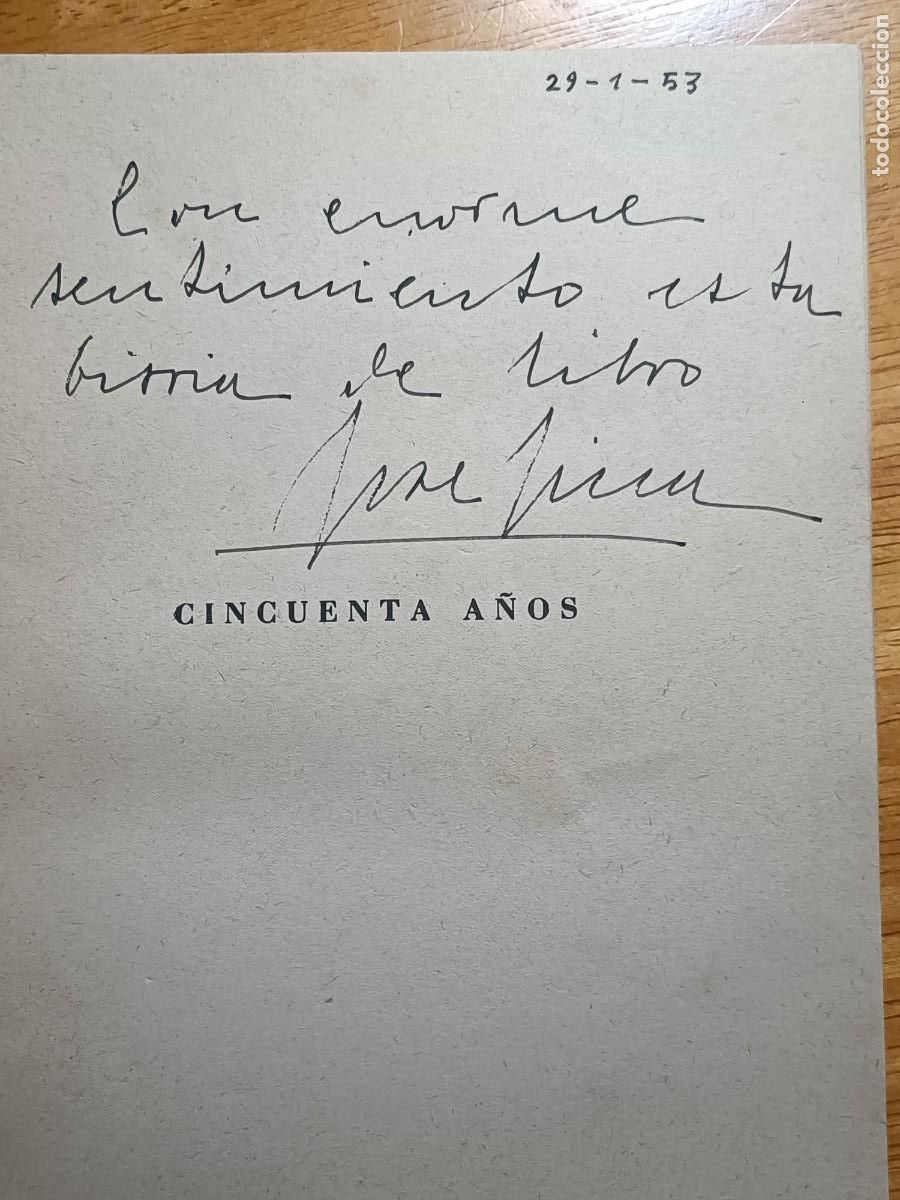 29-1-53
Con enorme
sentimiento esta
birria de libro
Jose
CINCUENTA AÑOS
todocoleccion